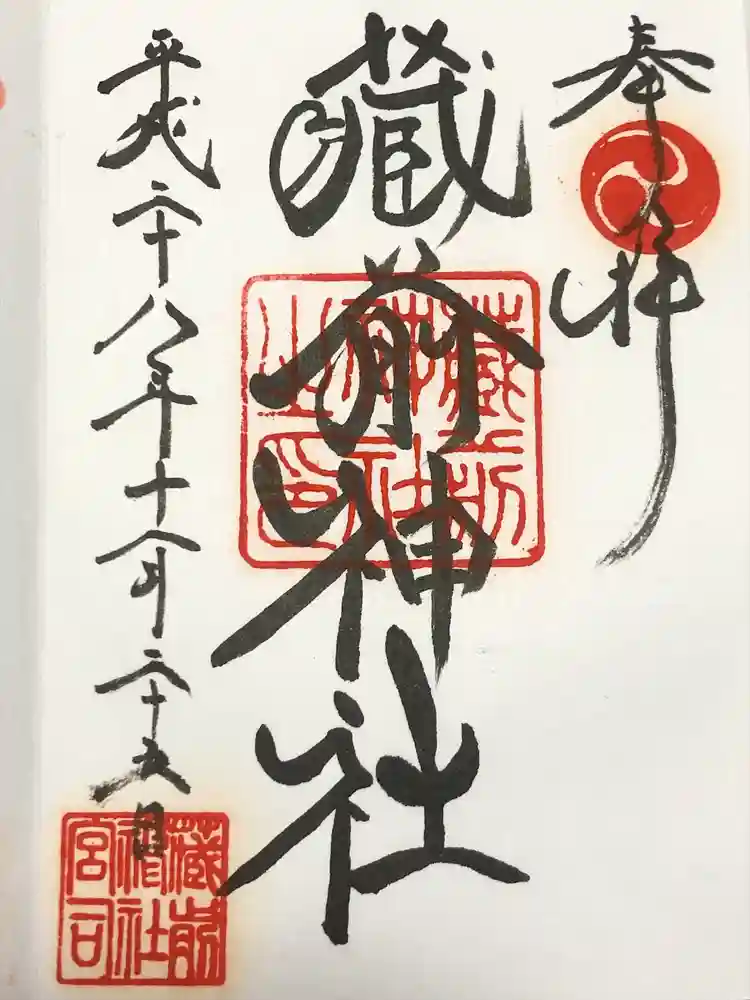 奉拝
藏前神社
藏前
神社
之印
平成二十八年十二月二十五日
藏前
神社
宮司